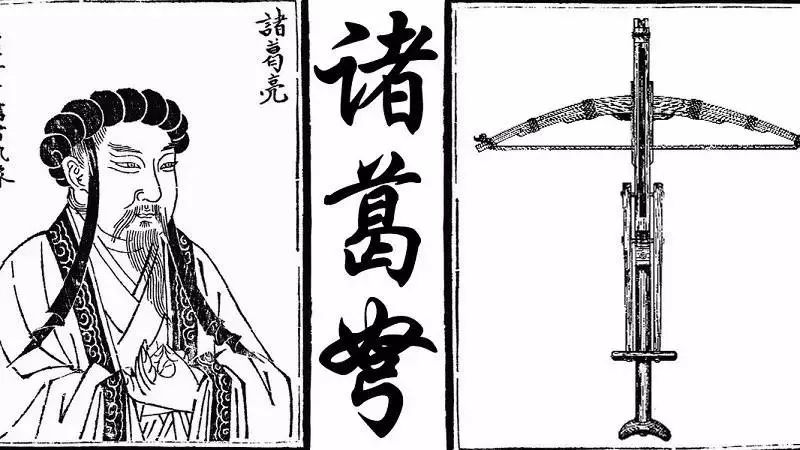 諸葛亮
诸葛弩